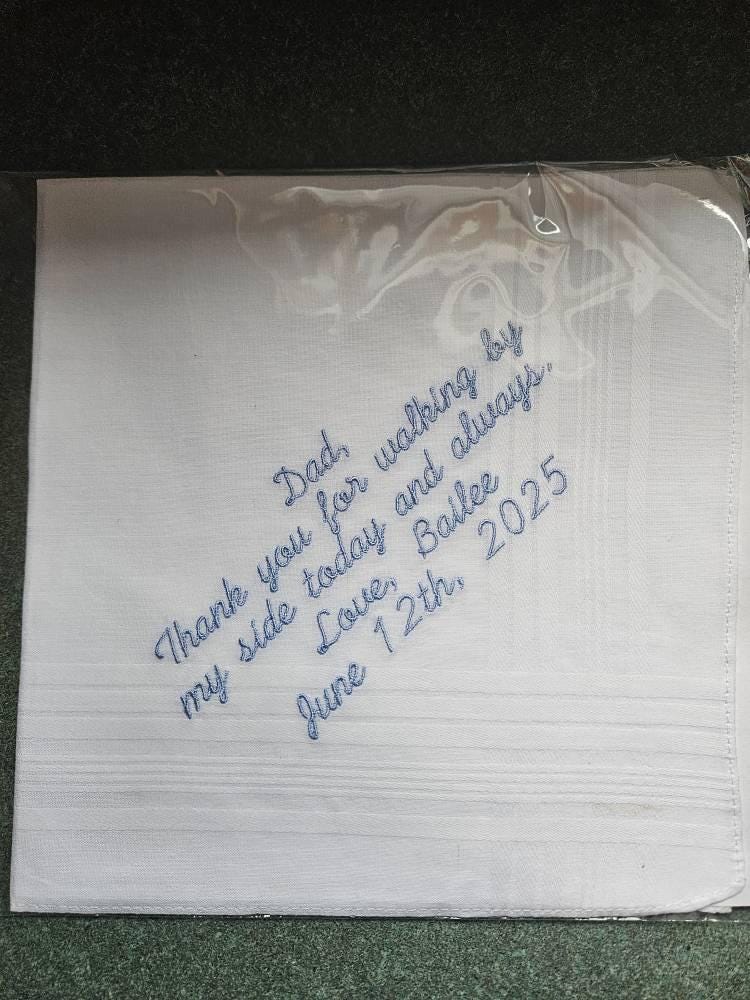 Dad,
Thank you for walking by
my side today and always.
Love, Bailee
June 12th, 2025